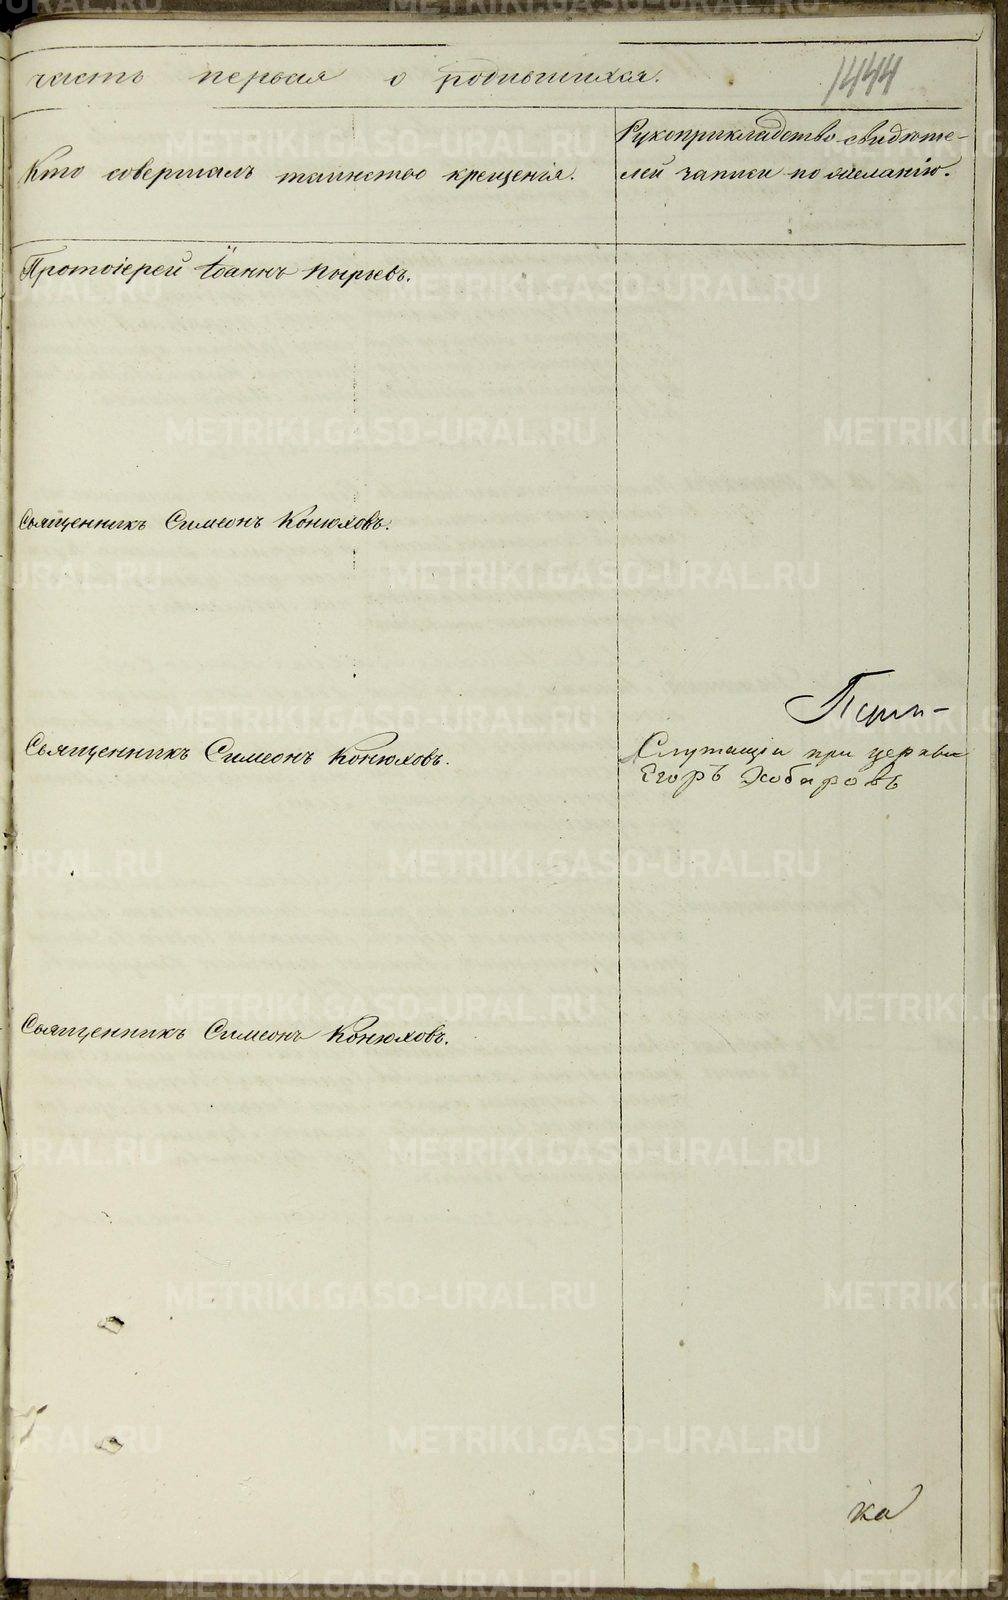 часть первая о родившихся.
1444
Кто совершалъ таинство крещенія.
Рукоприкладство свидѣте-
лей записи по желанію.
Протоіерей Іоаннъ Пырьевъ.
Священникъ Симеонъ Конюховъ.
Перм-
Священникъ Симеонъ Конюховъ.
Служащіи при церкви
Егоръ Хобаровъ
Священникъ Симеонъ Конюховъ.
ка
METRIKI.GASO-URAL.RU